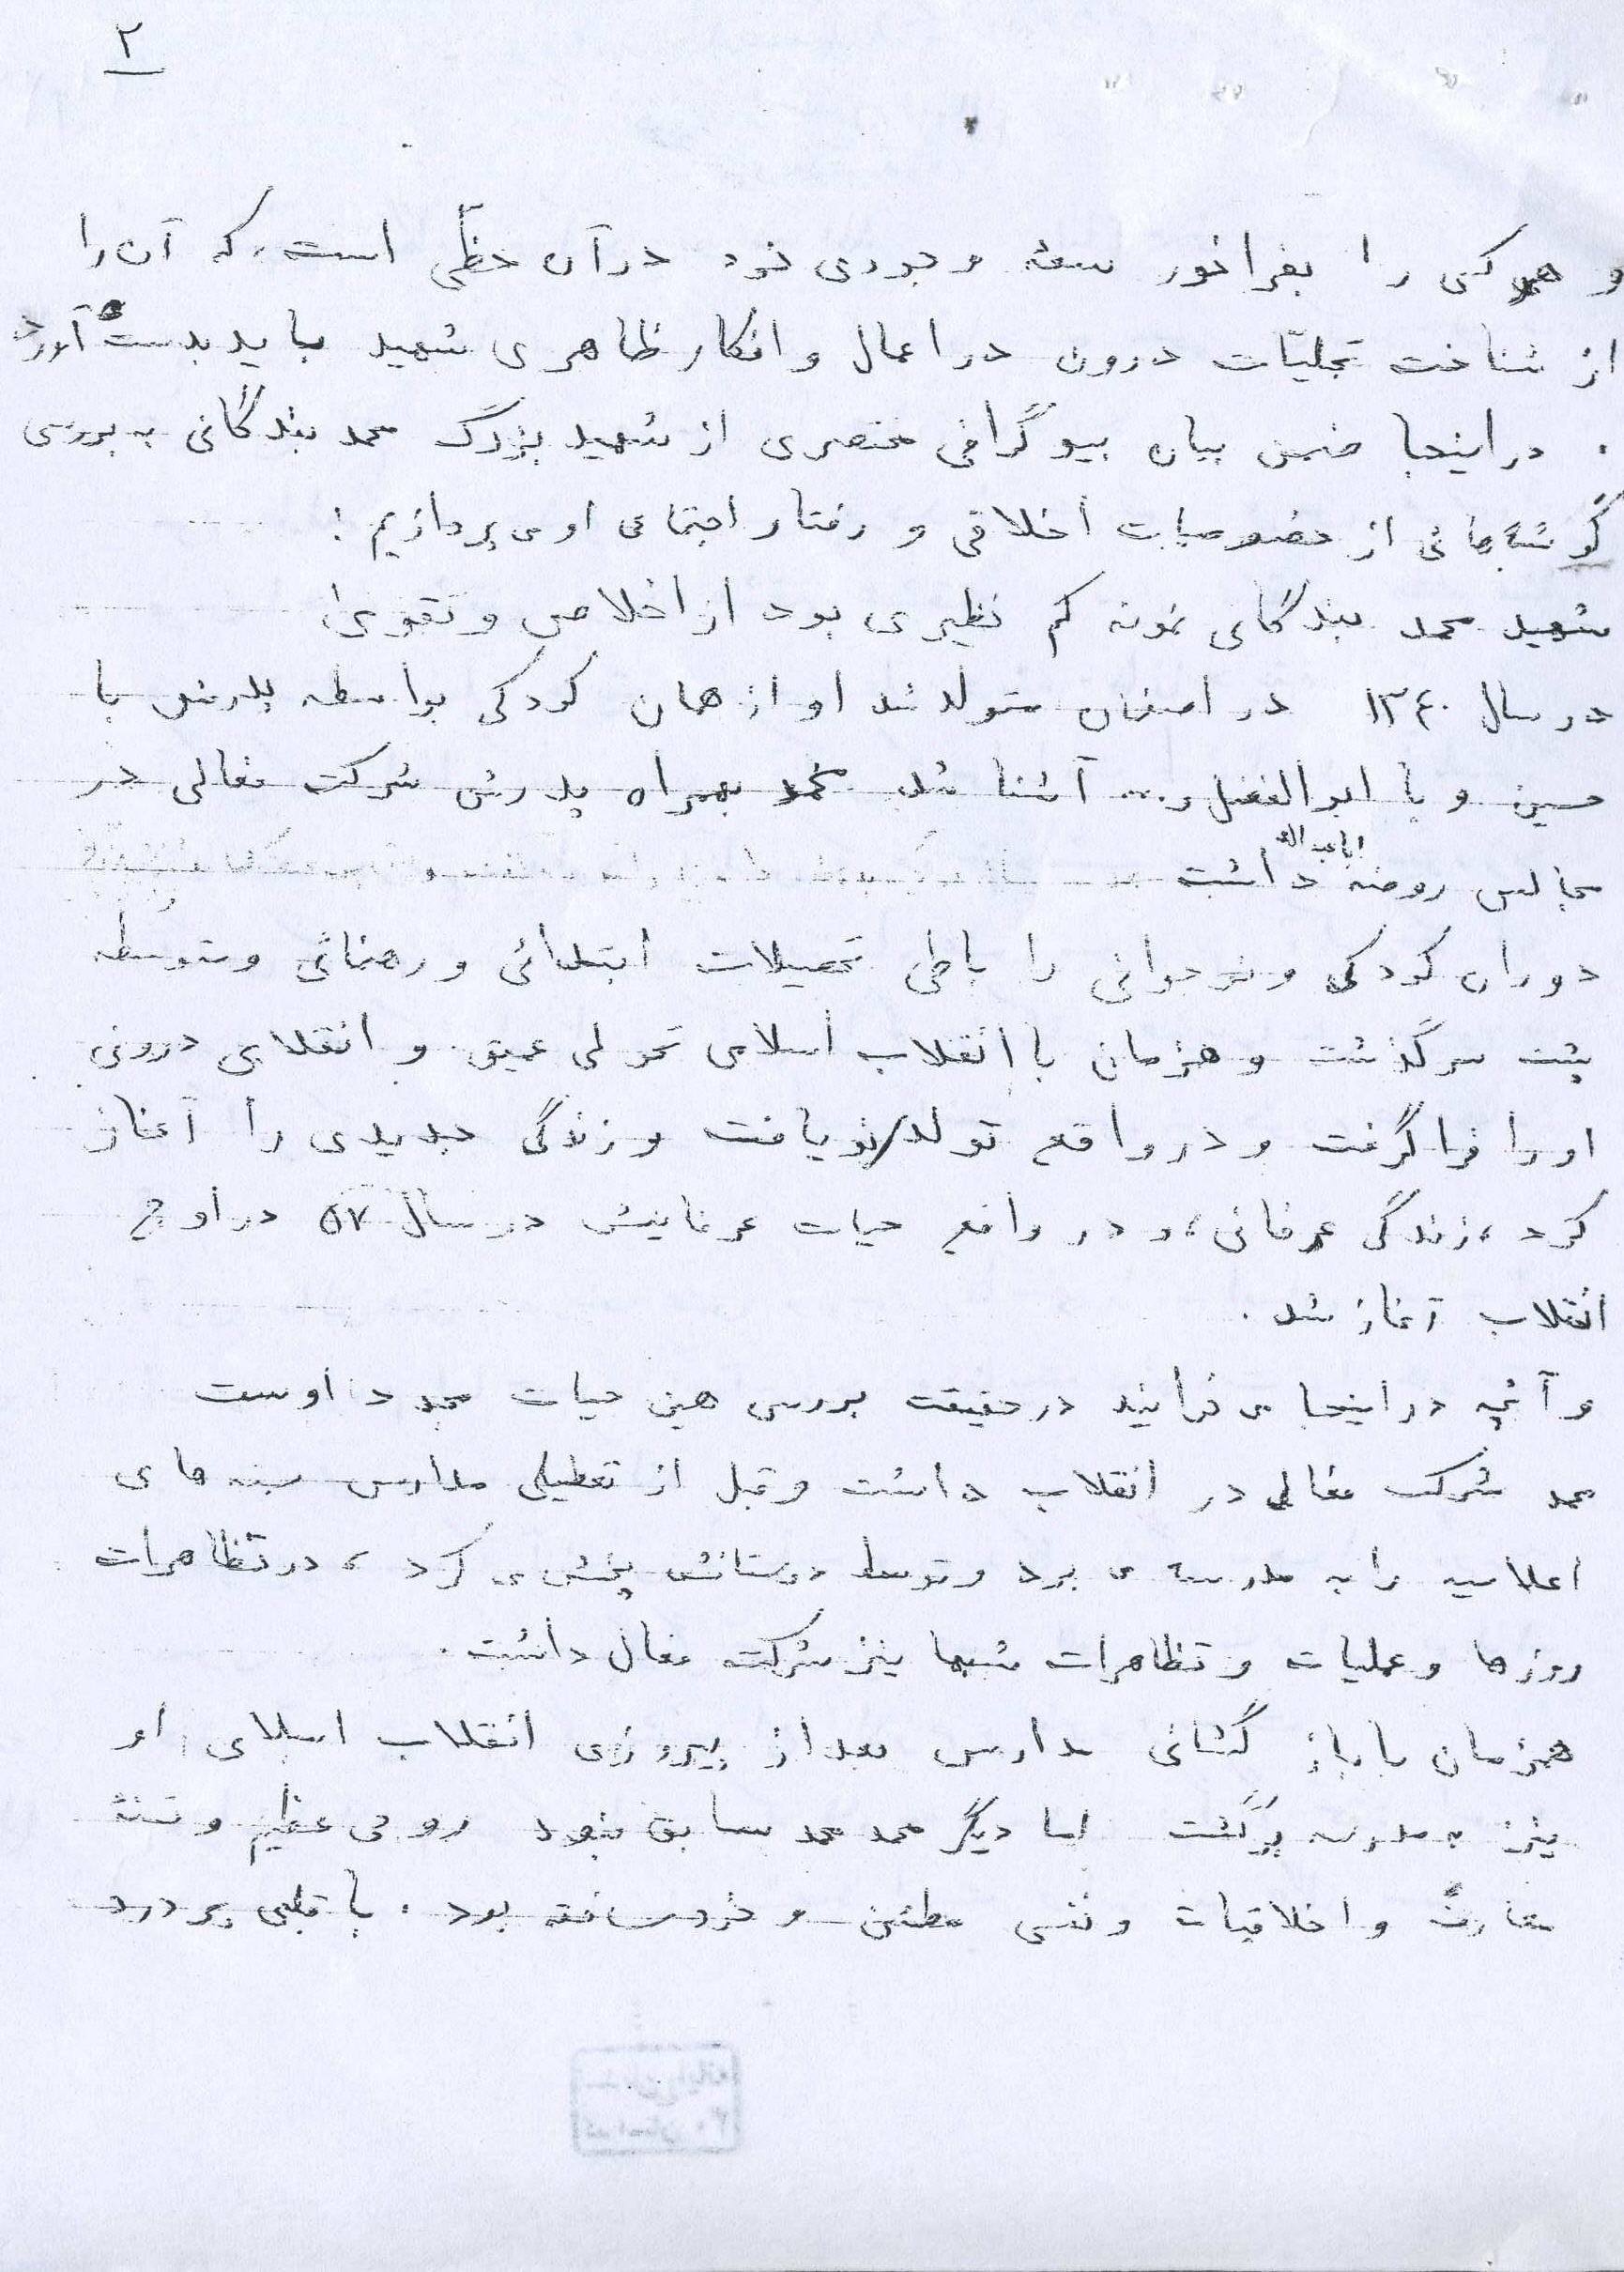 ۲
و هر کس را بفراخور سعه وجودی خود در آن حظّی است. که آن را
از شناخت تجلیّات درون در اعمال و افکار ظاهری شهید باید بدست آورد
. در اینجا ضمن بیان بیوگرافی مختصری از شهید بزرگ محمد بندگانی به بررسی
گوشه‌هائی از خصوصیات اخلاقی و رفتار اجتماعی او می پردازیم :
شهید محمد بندگانی نمونه کم نظیری بود از اخلاص و تقوی
در سال ۱۳۴۰ در اصفهان متولد شد او از همان کودکی بواسطه پدرش با
حسین و با ابوالفضل و... آشنا شد. محمد بهمراه پدرش شرکت فعالی در
مجالس روضه اباعبدالله داشت
دوران کودکی و نوجوانی را با طی تحصیلات ابتدائی و رهنمائی و متوسطه
پشت سر گذشت و همزمان با انقلاب اسلامی تحولی عمیق و انقلابی درونی
او را فرا گرفت و در واقع تولد نو یافت و زندگی جدیدی را آغاز
کرد، زندگی عرفانی، و در واقع حیات عرفانیش در سال ۵۷ در اوج
انقلاب آغاز شد .
و آنچه در اینجا می خوانید در حقیقت بررسی همین حیات مجدد اوست
محمد شرکت فعالی در انقلاب داشت و قبل از تعطیلی مدارس بسته های
اعلامیه را به مدرسه می برد و توسط دوستانش پخش می کرد، در تظاهرات
روزها و عملیات و تظاهرات شبها نیز شرکت فعال داشت .
همزمان با باز گشائی مدارس بعد از پیروزی انقلاب اسلامی او
نیز به مدرسه برگشت اما دیگر محمد محمد سابق نبود روحی عظیم و تشنه
معارف و اخلاقیات و نفسی مطمئن و خود ساخته بود . با قلبی پر درد